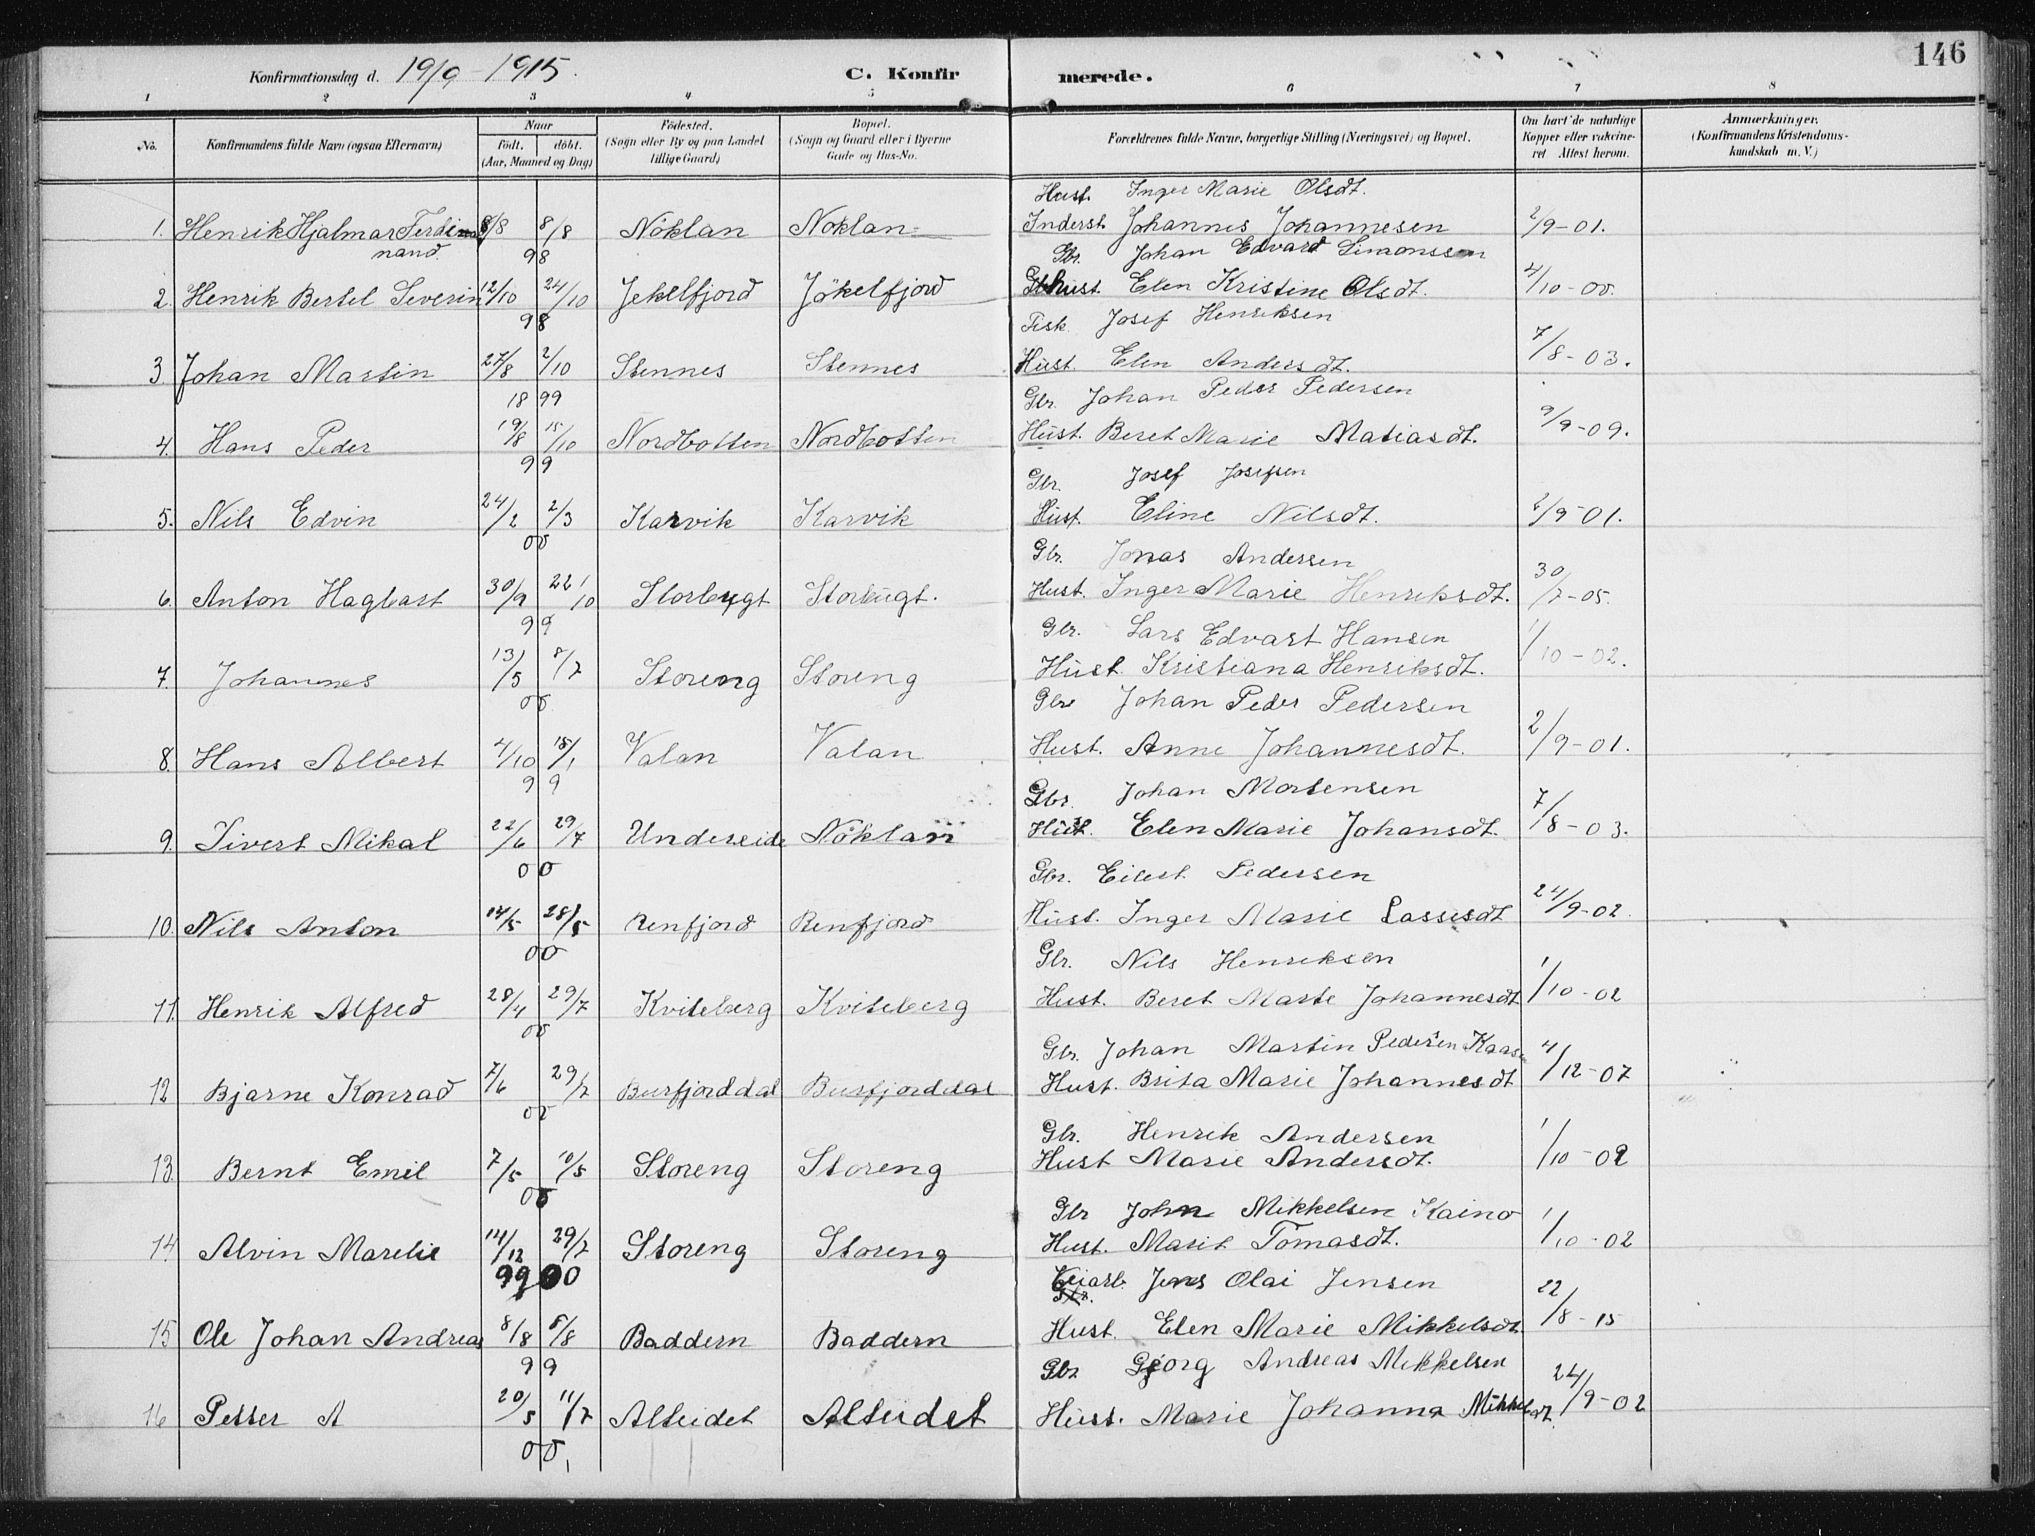 146
Konfirmationsdag d. 19/9 - 1915. C. Konfirmerede.
1 2 3 4 5 6 7 8
No. Konfirmandens fulde Navn (ogsaa Efternavn) Naar født. døbt. (Aar, Maaned og Dag) Fødested. (Sogn eller By og paa Landet tillige Gaard) Bopæl. (Sogn og Gaard eller i Byerne Gade og Hus-No. Forældrenes fulde Navne, borgerlige Stilling (Næringsvei) og Bopæl. Om havt de naturlige Kopper eller vakcineret Attest herom. Anmærkninger. (Konfirmandens Kristendomskundskab m. V.)
Hust. Inger Marie Olsdt.
1. Henrik Hjalmar Ferdinand 8/8 98 Nöklan Nöklan Inderst Johannes Johannesen 2/9-01.
Gbr. Johan Edvard Simonssen
2. Henrik Bertel Severin 12/10 24/10 98 Jekelfjord Jökelfjord Hust. Elen Kristine Olsdt. 4/10-00.
Fisk Josef Henriksen
3. Johan Martin 27/8 2/10 1899 Stennes Stennes Hust. Elen Andersdt. 7/8-03.
Gbr. Johan Peder Pedersen
4. Hans Peder 19/8 15/10 99 Nordbotten Nordbotten Hust. Beret Marie Matiasdt. 9/9-09.
Gbr. Josef Josefsen
5. Nils Edvin 24/2 2/3 00 Karvik Karvik Hust. Eline Nilsdt. 2/9-01.
Gbr. Jonas Andersen
6. Anton Hagbart 30/9 22/10 99 Storbugt Storbugt. Hust. Inger Marie Henriksdt. 30/7-05.
Gbr. Lars Edvart Hansen
7. Johannes 13/5 8/7 00 Storeng Storeng Hust. Kristiana Henriksdt. 1/10-02.
Gbr Johan Peder Pedersen
8. Hans Albert 4/10 18/1 99 Valan Valan Hust. Anne Johannesdt. 2/9-01.
Gbr. Johan Mortensen
9. Sivert Mikal 22/6 29/7 00 Undereide Nöklan Hust. Elen Marie Johansdt. 7/8-03.
Gbr. Eilert Pedersen
10. Nils Anton 14/5 28/5 00 Renfjord Renfjord Hust. Inger Marie Lassesdt 24/9-02.
Gbr. Nils Henriksen
11. Henrik Alfred 28/4 29/7 00 Kviteberg Kviteberg Hust. Beret Marte Johannesdt 1/10-02
Gbr. Johan Martin Pedersen Kaasen
12 Bjarne Konrad 7/6 29/7 00 Burfjorddal Burfjorddal Hust. Brita Marie Johannesdt 4/12-07
Gbr. Henrik Andersen
13. Bernt Emil 7/5 10/5 00 Storeng Storeng Hust Marie Andersdt. 1/10-02
Gbr John Mikkelsen Kaino
14. Alvin Marelie 14/12 29/7 99 00 Storeng Storeng Hust. Marit Tomasdt. 1/10-02
Veiarb. Jens Olai Jensen
15 Ole Johan Andreas 8/8 8/8 99 Baddern Baddern Hust. Elen Marie Mikkelsdt 22/8-15
Gbr Georg Andreas Mikkelsen
16 Petter A 20/5 11/7 00. Alteidet Alteidet Hust. Marie Johanna Mikkelsdt. 24/9-02